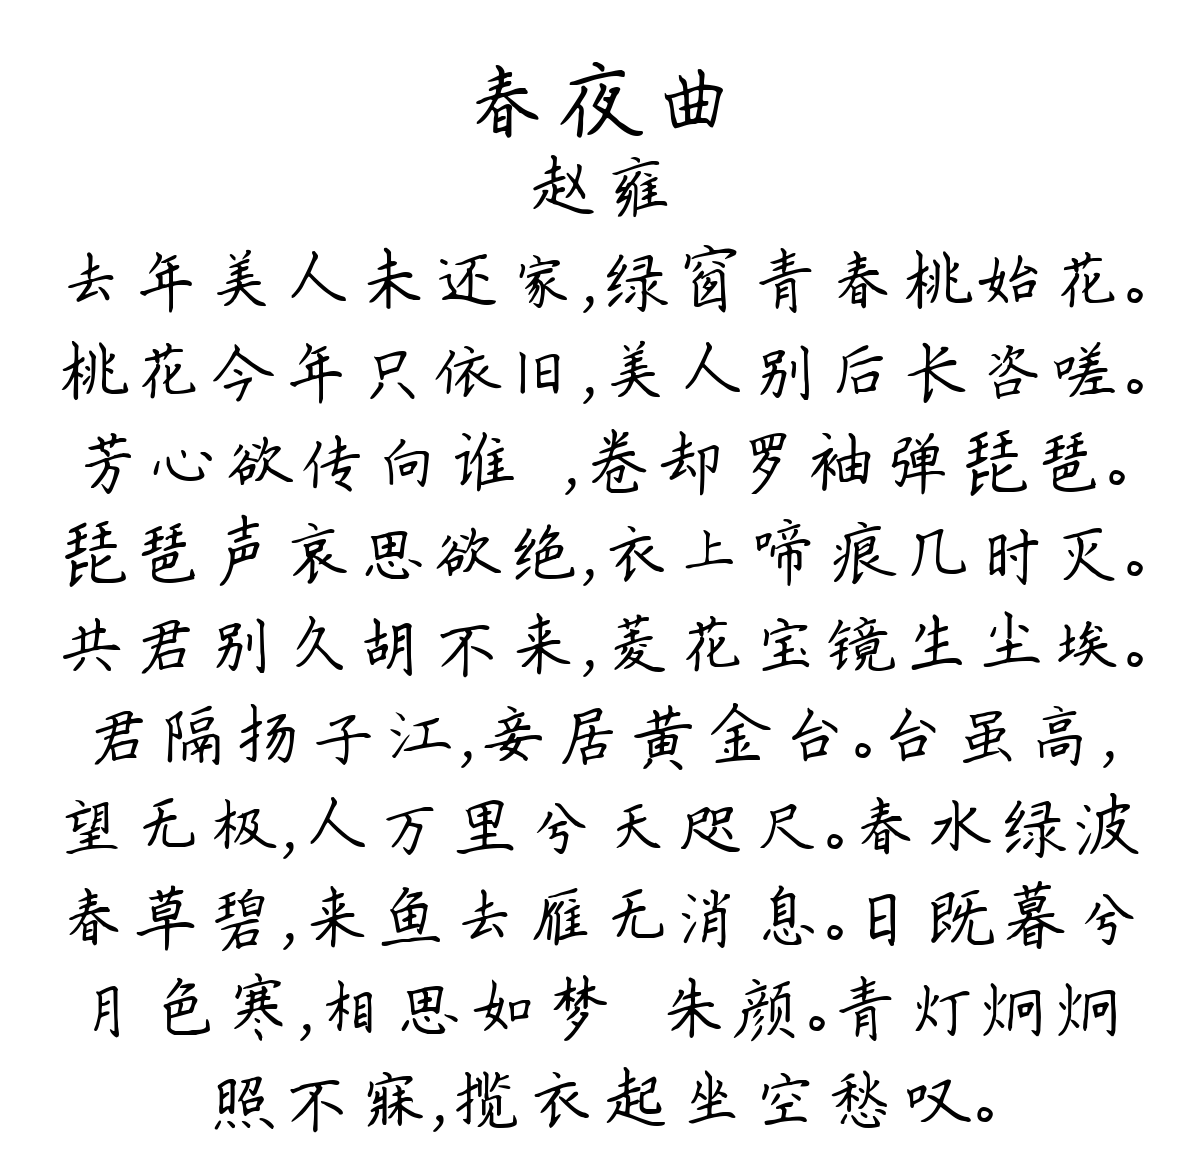 春夜曲
赵雍
去年美人未还家,绿窗青春桃始花。
桃花今年只依旧,美人别后长咨嗟。
芳心欲传向谁 ,卷却罗袖弹琵琶。
琵琶声哀思欲绝,衣上啼痕几时灭。
共君别久胡不来,菱花宝镜生尘埃。
君隔扬子江,妾居黄金台。台虽高,
望无极,人万里兮天咫尺。春水绿波
春草碧,来鱼去雁无消息。日既暮兮
月色寒,相思如梦 朱颜。青灯炯炯
照不寐,揽衣起坐空愁叹。